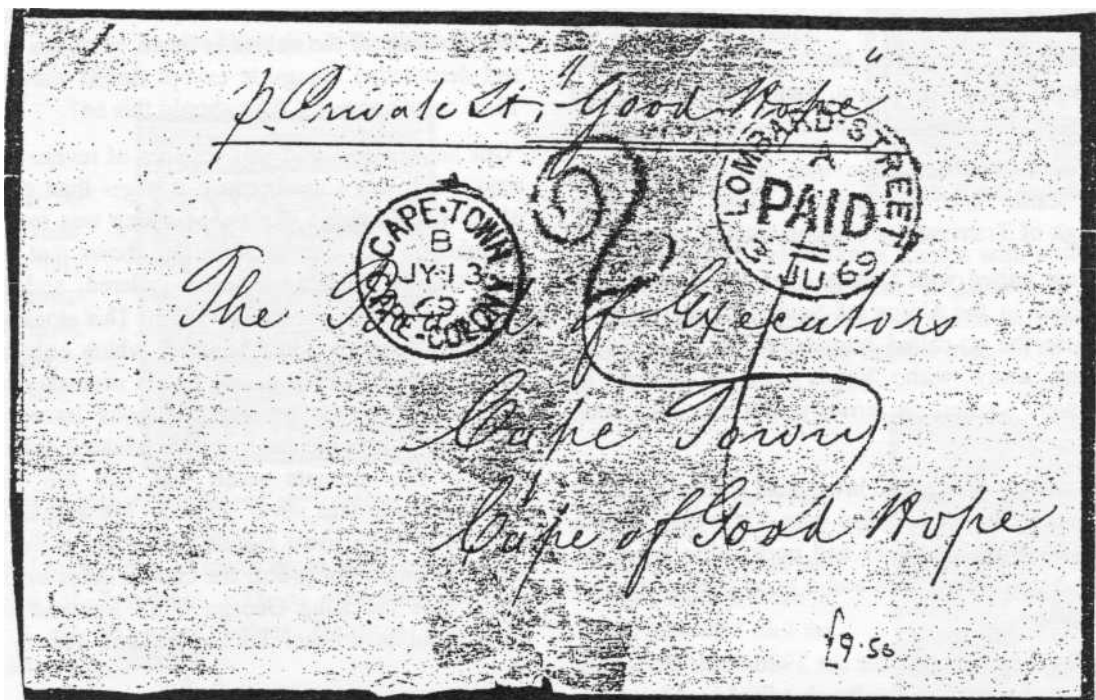 p. Private St, "Good Hope"
LOMBARD STREET
A
PAID
3 JU 69
CAPE-TOWN
B
JY-13
69
CAPE-COLONY
The Board of Executors
Cape Town
Cape of Good Hope
£9.50